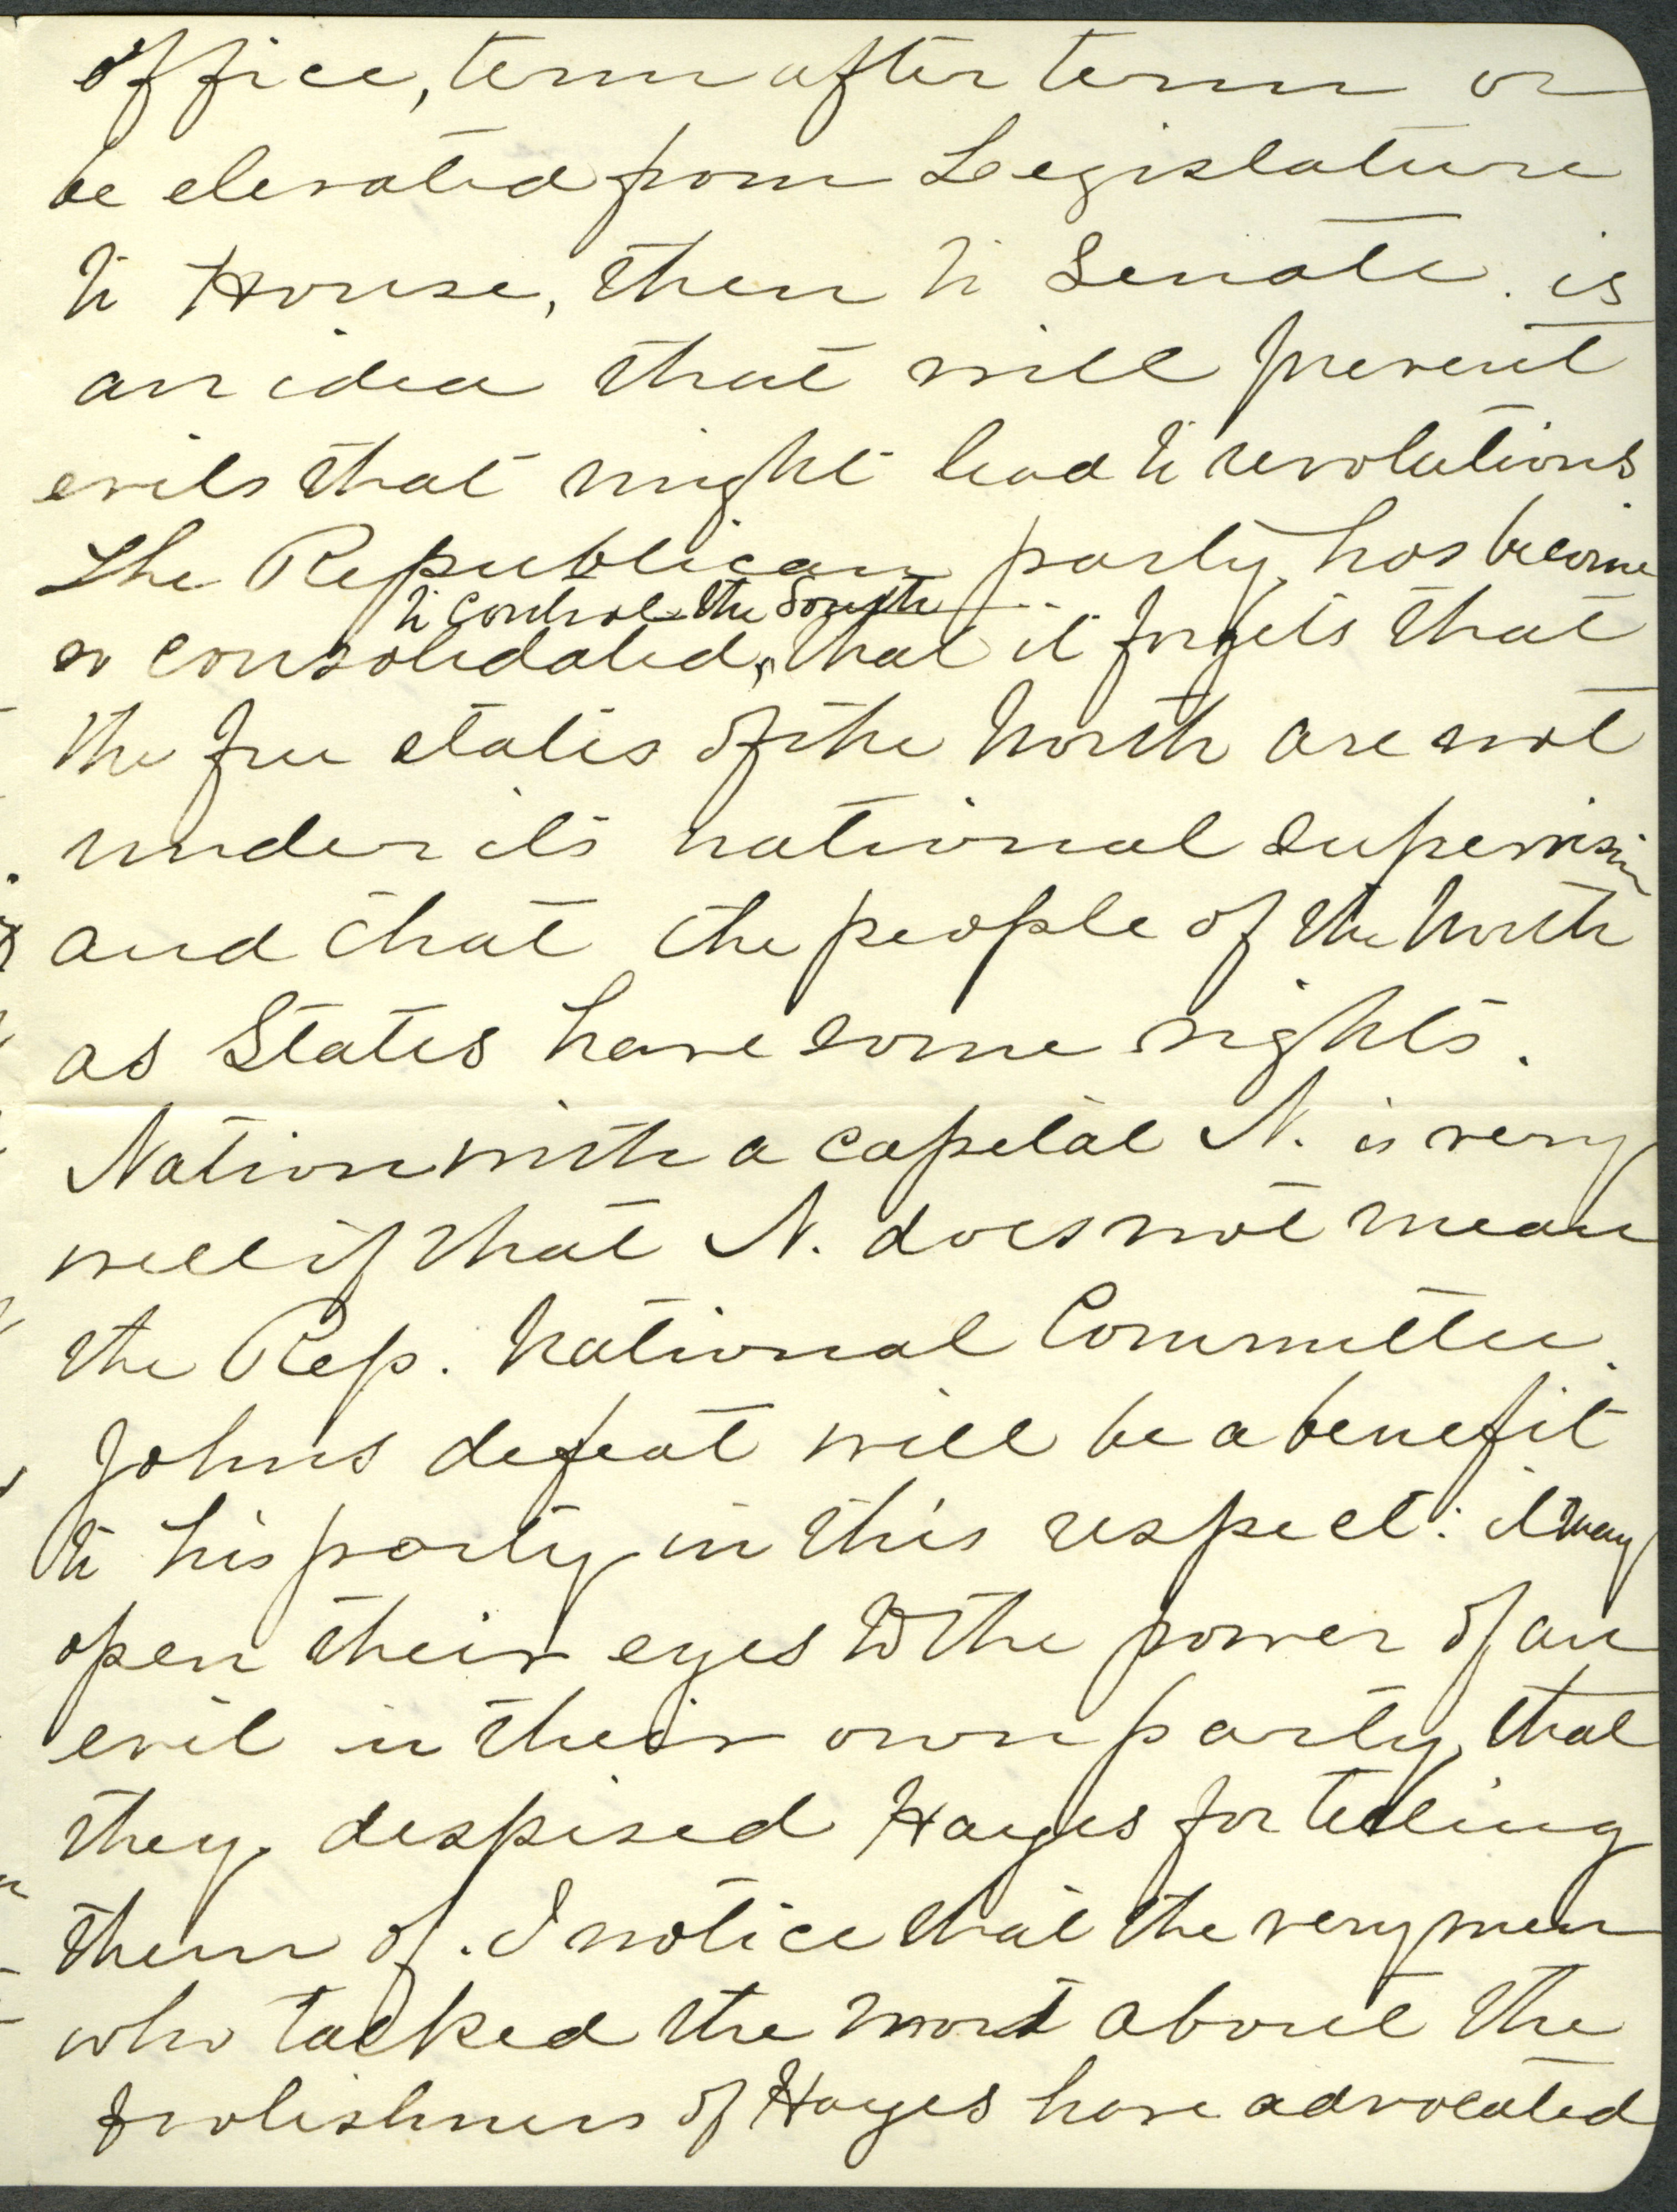 office, term after term or
be elevated from Legislature
to House, then to Senate. is
an idea that will prevent
evils that might lead to revolutions
The Republican party, has become
to control the South
so consolidated, that it forgets that
the free states of the North are not
under its national supervision
and that the people of the North
as States have some rights.
Nation with a capital N. is very
well if that N. does not mean
the Rep. National Committee.
Johns defeat will be a benefit
to his party in this respect: it may
open their eyes to the power of an
evil in their own party, that
they despised Hayes for telling
them of. I notice that the very men
who talked the most about the
foolishness of Hayes have advocated